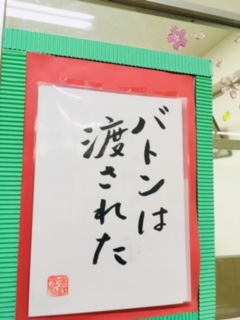 バトンは
渡された